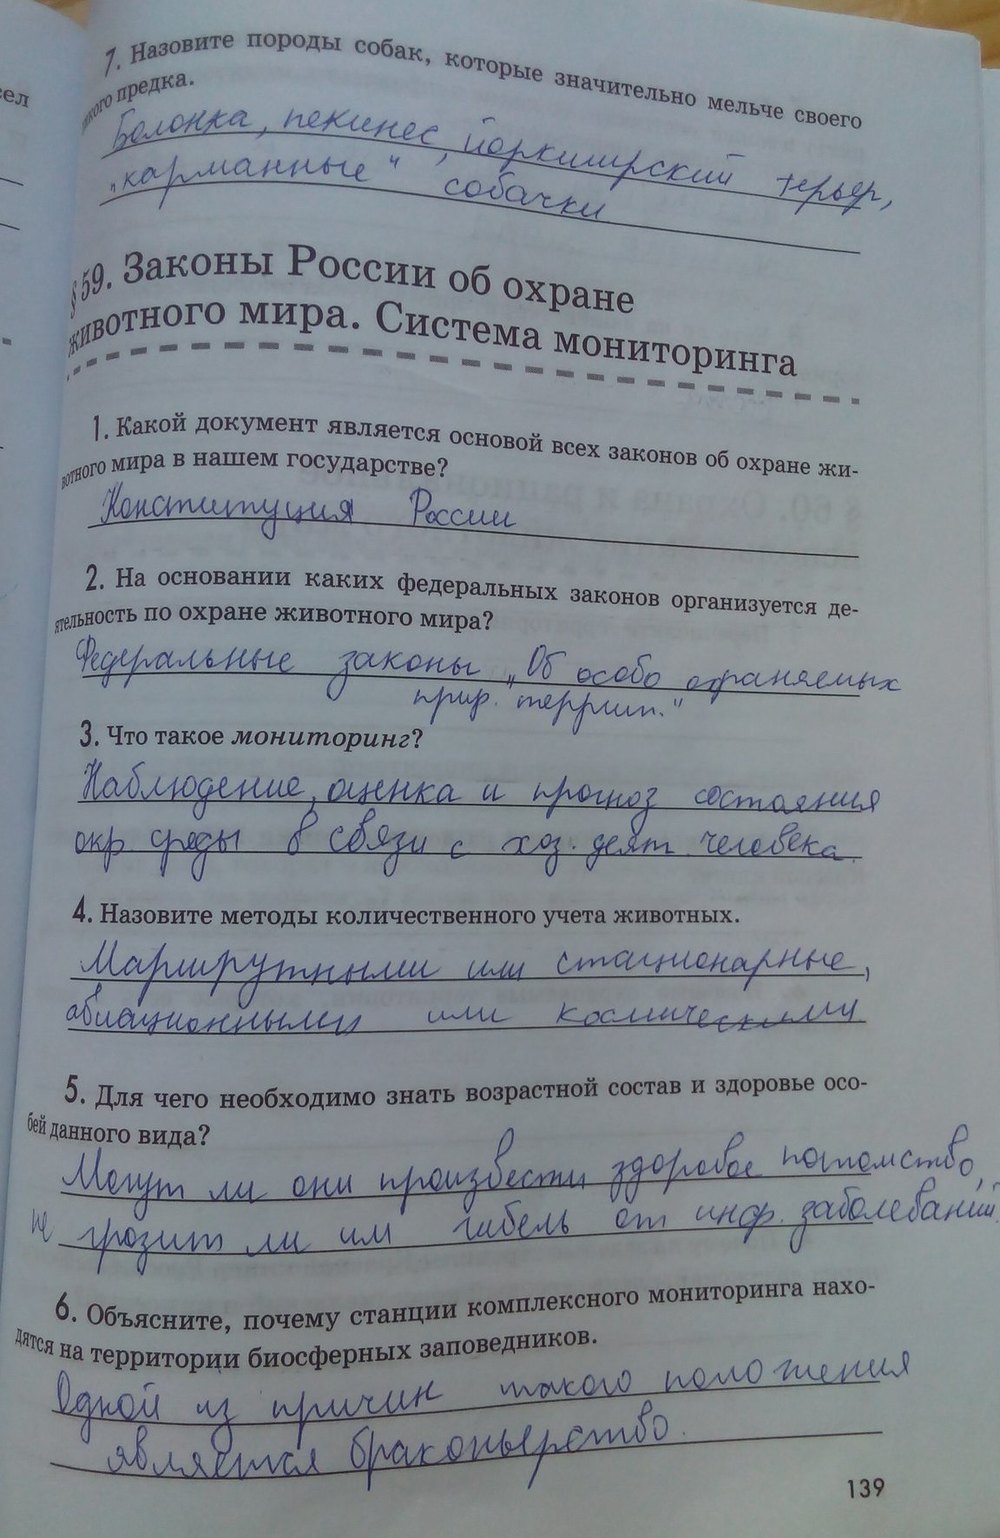 7. Назовите породы собак, которые значительно мельче своего
дикого предка.
Болонка, пекинес, йоркширский терьер,
„карманные“ собачки
§ 59. Законы России об охране
животного мира. Система мониторинга
1. Какой документ является основой всех законов об охране жи-
вотного мира в нашем государстве?
Конституция России
2. На основании каких федеральных законов организуется де-
ятельность по охране животного мира?
Федеральные законы „Об особо охраняемых
прир. террит.“
3. Что такое мониторинг?
Наблюдение, оценка и прогноз состояния
окр. среды в связи с хоз. деят. человека.
4. Назовите методы количественного учета животных.
Маршрутными или стационарные,
авиационными или космическими
5. Для чего необходимо знать возрастной состав и здоровье осо-
бей данного вида?
Могут ли они произвести здоровое потомство,
не грозит ли им гибель от инф. заболеваний
6. Объясните, почему станции комплексного мониторинга нахо-
дятся на территории биосферных заповедников.
Одной из причин такого положения
является браконьерство.
139